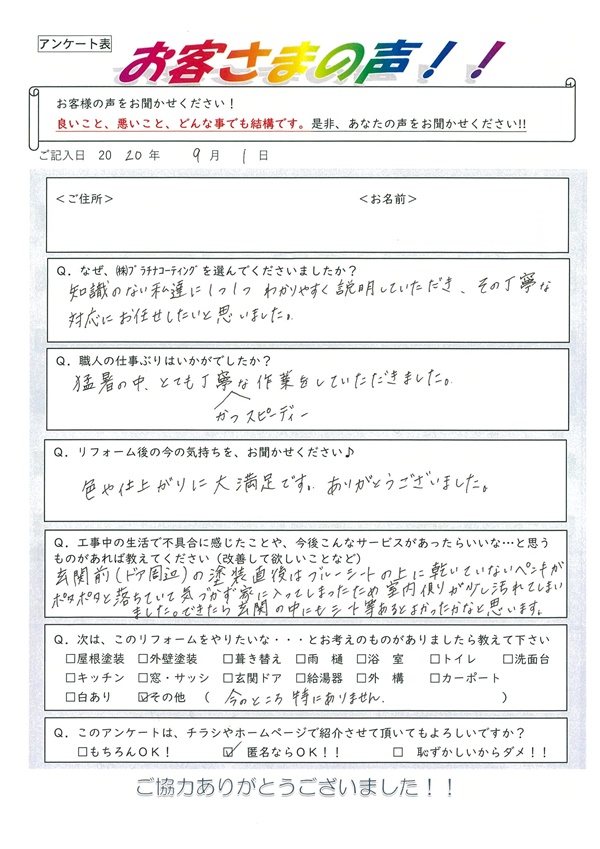 アンケート表
お客さまの声！！
お客様の声をお聞かせください！
良いこと、悪いこと、どんな事でも結構です。是非、あなたの声をお聞かせください!!
ご記入日 2020年 9月 1日
＜ご住所＞ ＜お名前＞
Q．なぜ、㈱ﾌﾟﾗﾁﾅｺｰﾃｨﾝｸﾞを選んでくださいましたか？
知識のない私達に1つ1つ わかりやすく説明していただき、その丁寧な
対応にお任せしたいと思いました。
Q．職人の仕事ぶりはいかがでしたか？
猛暑の中、とても丁寧な作業をしていただきました。
かつスピーディー
Q．リフォーム後の今の気持ちを、お聞かせください♪
色や仕上がりに大満足です。ありがとうございました。
Q．工事中の生活で不具合に感じたことや、今後こんなサービスがあったらいいな…と思う
ものがあれば教えてください（改善して欲しいことなど）
玄関前（ドア周辺）の塗装直後はブルーシートの上に乾いていないペンキが
ポタポタと落ちていて気づかず家に入ってしまったため室内側が少し汚れてしまい
ました。できたら玄関の中にもシート等あるとよかったかなと思います。
Q．次は、このリフォームをやりたいな・・・とお考えのものがありましたら教えて下さい
□屋根塗装 □外壁塗装 □葺き替え □雨 樋 □浴 室 □トイレ □洗面台
□キッチン □窓・サッシ □玄関ドア □給湯器 □外 構 □カーポート
□白あり ☑その他 （ 今のところ 特にありません。 ）
Q．このアンケートは、チラシやホームページで紹介させて頂いてもよろしいですか？
□もちろんOK！ ☑ 匿名ならOK！！ □ 恥ずかしいからダメ！！
ご協力ありがとうございました！！